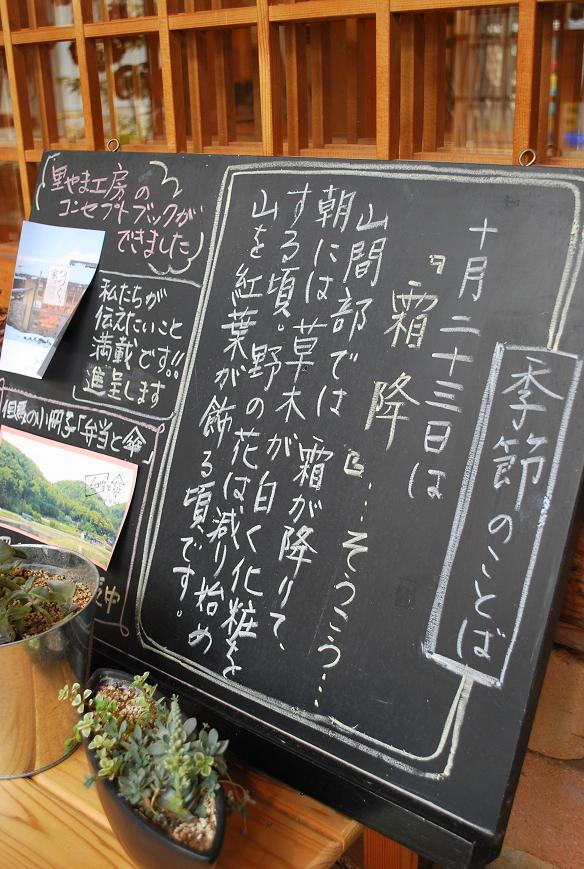 季節のことば
十月二十三日は
『霜降』…そうこう…
山間部では 霜が降りて、
朝には草木が白く化粧を
する頃。野の花は減り始め
山を紅葉が飾る頃です。
里やま工房の
コンセプトブックが
できました
私たちが
伝えたいこと
満載です!!
進呈します
但馬の小冊子「弁当と傘」
弁当と傘
中